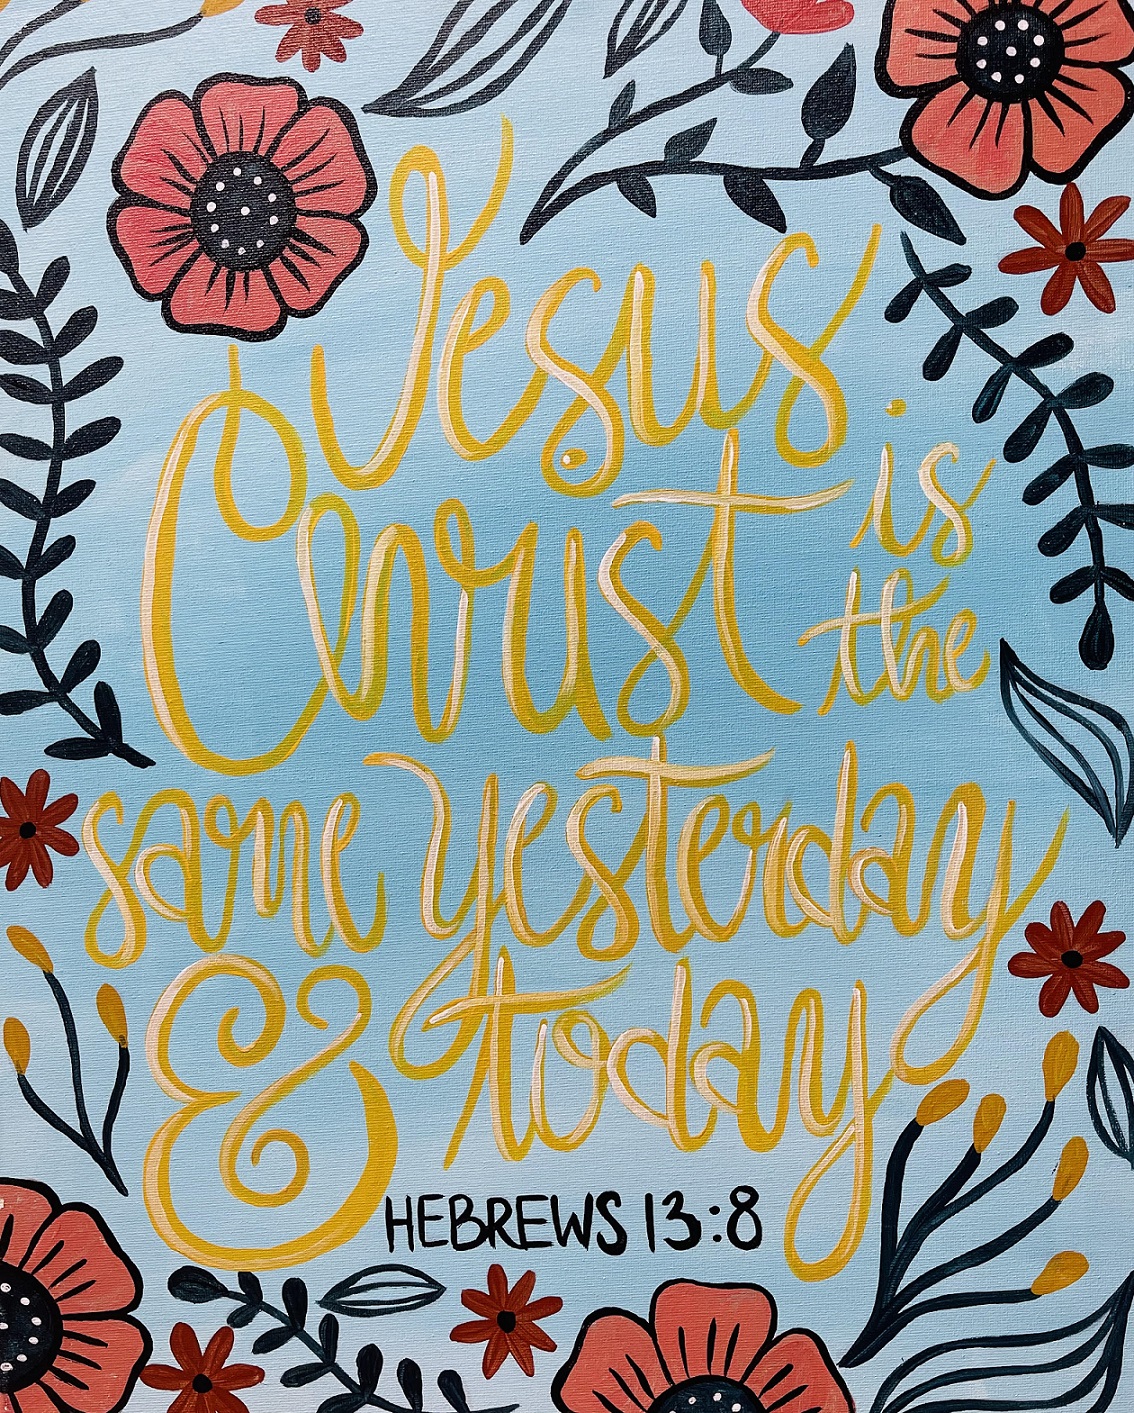 Jesus
Christ is
the
same yesterday
& today
HEBREWS 13:8